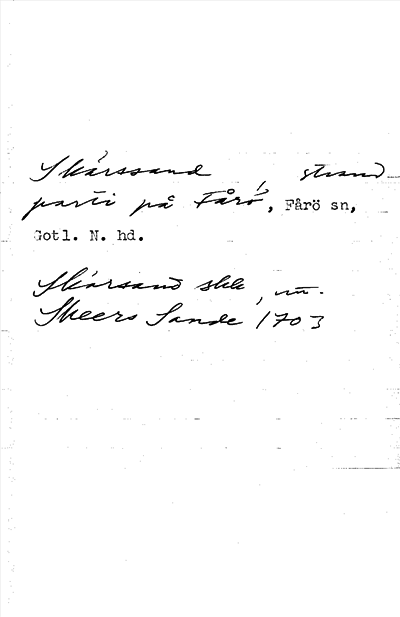 Skärssand, strand-
parti på Fårö, Fårö sn,
Gotl. N. hd.
Skärsand
Skeers Sande 1703